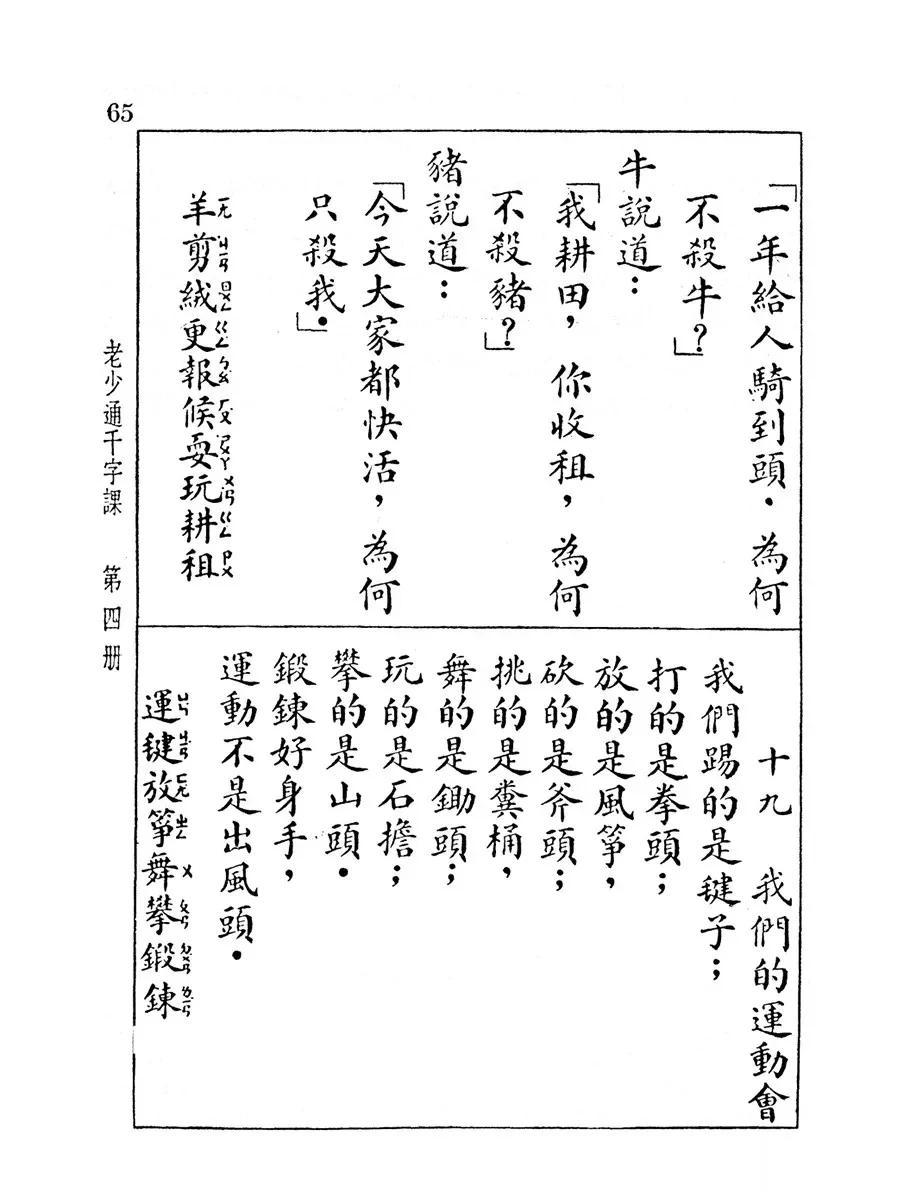 65
「一年給人騎到頭．為何
不殺牛？」
牛說道：
「我耕田，你收租，為何
不殺豬？」
豬說道：
「今天大家都快活，為何
只殺我．」
羊剪絨更報候耍玩耕租
十九 我們的運動會
我們踢的是毽子；
打的是拳頭；
放的是風箏，
砍的是斧頭；
挑的是糞桶，
舞的是鋤頭；
玩的是石擔；
攀的是山頭．
鍛鍊好身手，
運動不是出風頭．
運毽放箏舞攀鍛鍊
老少通千字課 第四册